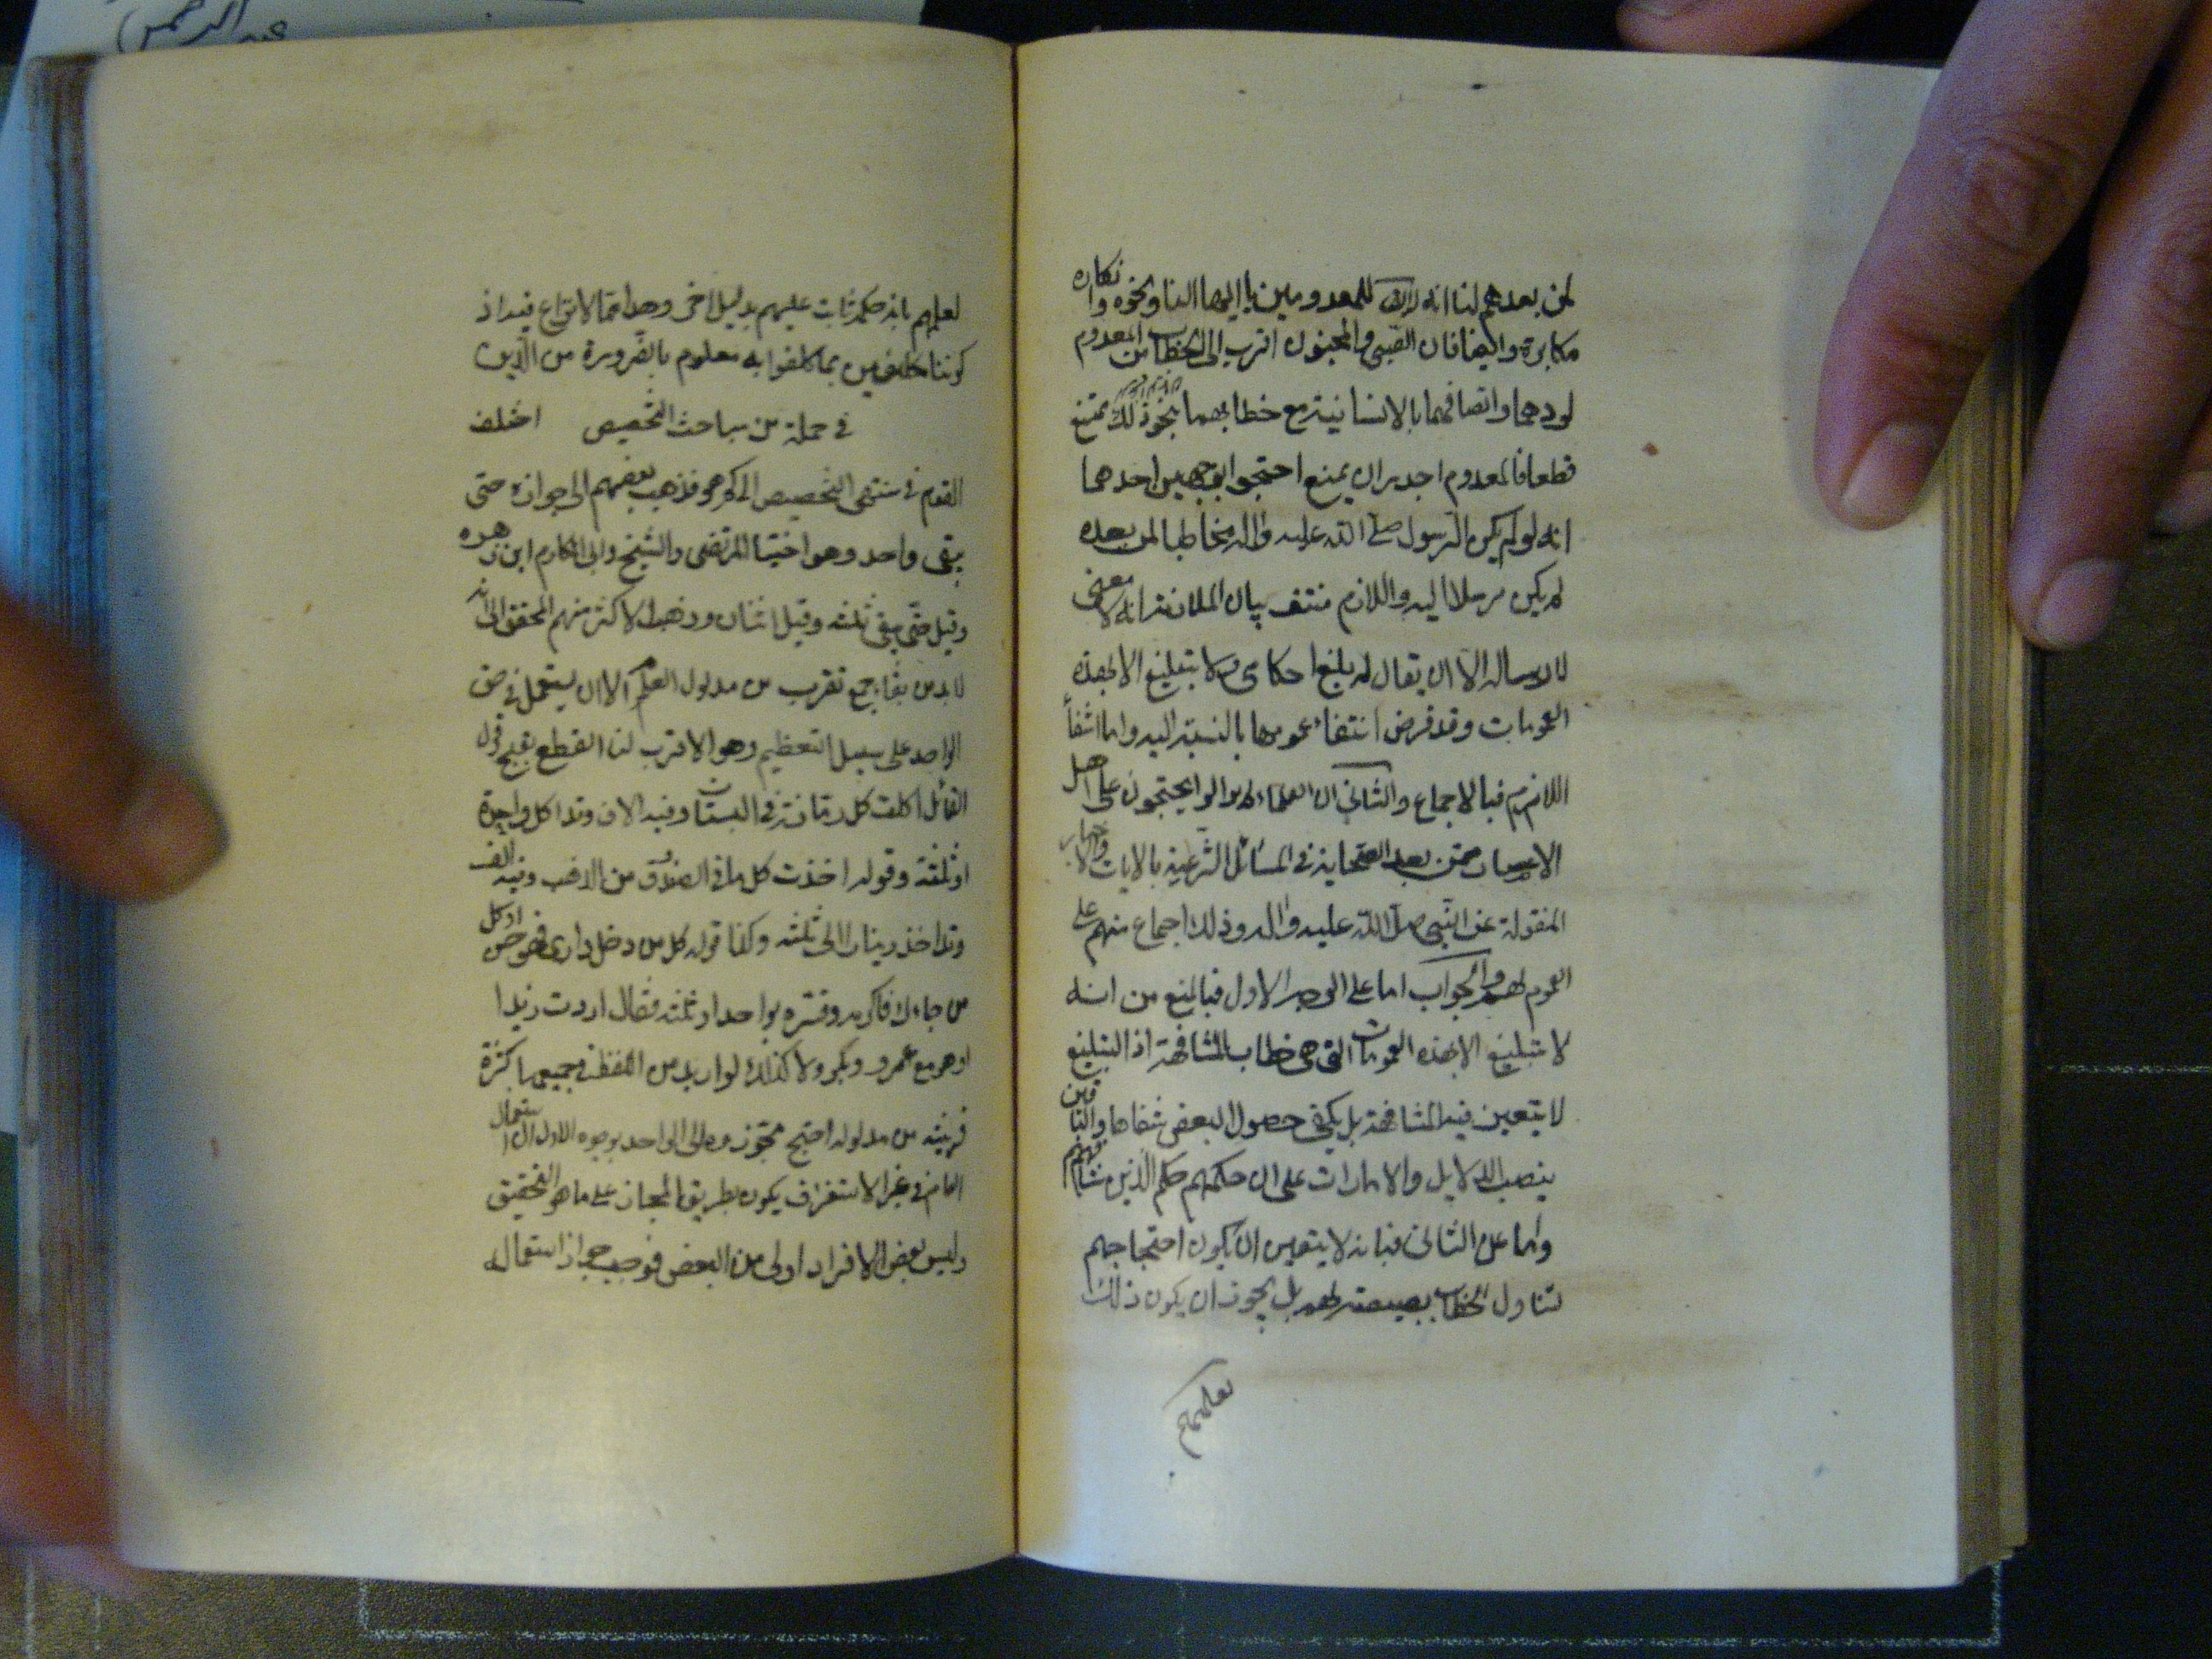 لمن بعدهم لنا انه لا يقال للمعدومين يا ايها الناس ونحوه وانكاره
مكابرة وايضا فان الصبي والمجنون اقرب الى الخطاب من المعدوم
لوجودهما واتصافهما بالانسانية مع خطابهما بنحو ذلك ممتنع
قطعا فالمعدوم اجدر ان يمنع احتجوا بوجهين احدهما
انه لو لم يكن الرسول صلى الله عليه واله مخاطبا لمن بعده
لم يكن مرسلا اليه واللازم منتف بيان الملازمة انه لا معنى
لارساله الا ان يقال له بلغ احكامي ولا تبليغ الا بهذه
العمومات وقد فرض انتفاء عمومها بالنسبة اليه واما انتفاء
اللازم فبالاجماع والثاني ان العلماء لم يزالوا يحتجون على اهل
الاعصار ممن بعد الصحابة في المسائل الشرعية بالايات والاخبار
المنقولة عن النبي صلى الله عليه واله وذلك اجماع منهم على
العموم لهم والجواب اما على الوجه الاول فبالمنع من انه
لا تبليغ الا بهذه العمومات التي هي خطاب المشافهة اذ التبليغ
لا يتعين فيه المشافهة بل يكفي حصول البعض شفاها وللباقين
بنصب الدلايل والامارات على ان حكمهم حكم الذين شافههم
واما على الثاني فبانه لا يتعين ان يكون احتجاجهم
لتناول الخطاب بصيغته لهم بل يجوز ان يكون ذلك
لعلمهم
لعلمهم بان حكمه ثابت عليهم بدليل اخر وهذا مما لا نزاع فيه اذ
كوننا مكلفين بما كلفوا به معلوم بالضرورة من الدين
في جملة من مباحث التخصيص اختلف
القوم في منتهى التخصيص الى كم هو فذهب بعضهم الى جوازه حتى
يبقى واحد وهو اختيار المرتضى والشيخ وابي المكارم ابن زهره
وقيل حتى يبقى ثلثة وقيل اثنان وذهب الاكثر منهم المحقق الى انه
لا بد من بقاء جمع تقرب من مدلول العام الا ان يستعمل في حق
الواحد على سبيل التعظيم وهو الاقرب لنا القطع بقبح قول
القائل اكلت كل رمانة في البستان وفيه الاف وقد اكل واحدة
او ثلثة وقوله اخذت كل ما في الصندوق من الذهب وفيه الف
وقد اخذ دينارا الى ثلثة وكذا قوله كل من دخل داري فهو حر او كل
من جاءك فاكرمه وفسره بواحد او ثلثة فقال اردت زيدا
او هو مع عمرو وبكر ولا كذلك لو اريد من اللفظ في جميعها كثرة
قريبة من مدلوله احتج مجوزوه الى الواحد بوجوه الاول ان استعمال
العام في غير الاستغراق يكون بطريق المجاز على ما هو التحقيق
وليس بعض الافراد اولى من البعض فوجب جواز استعماله